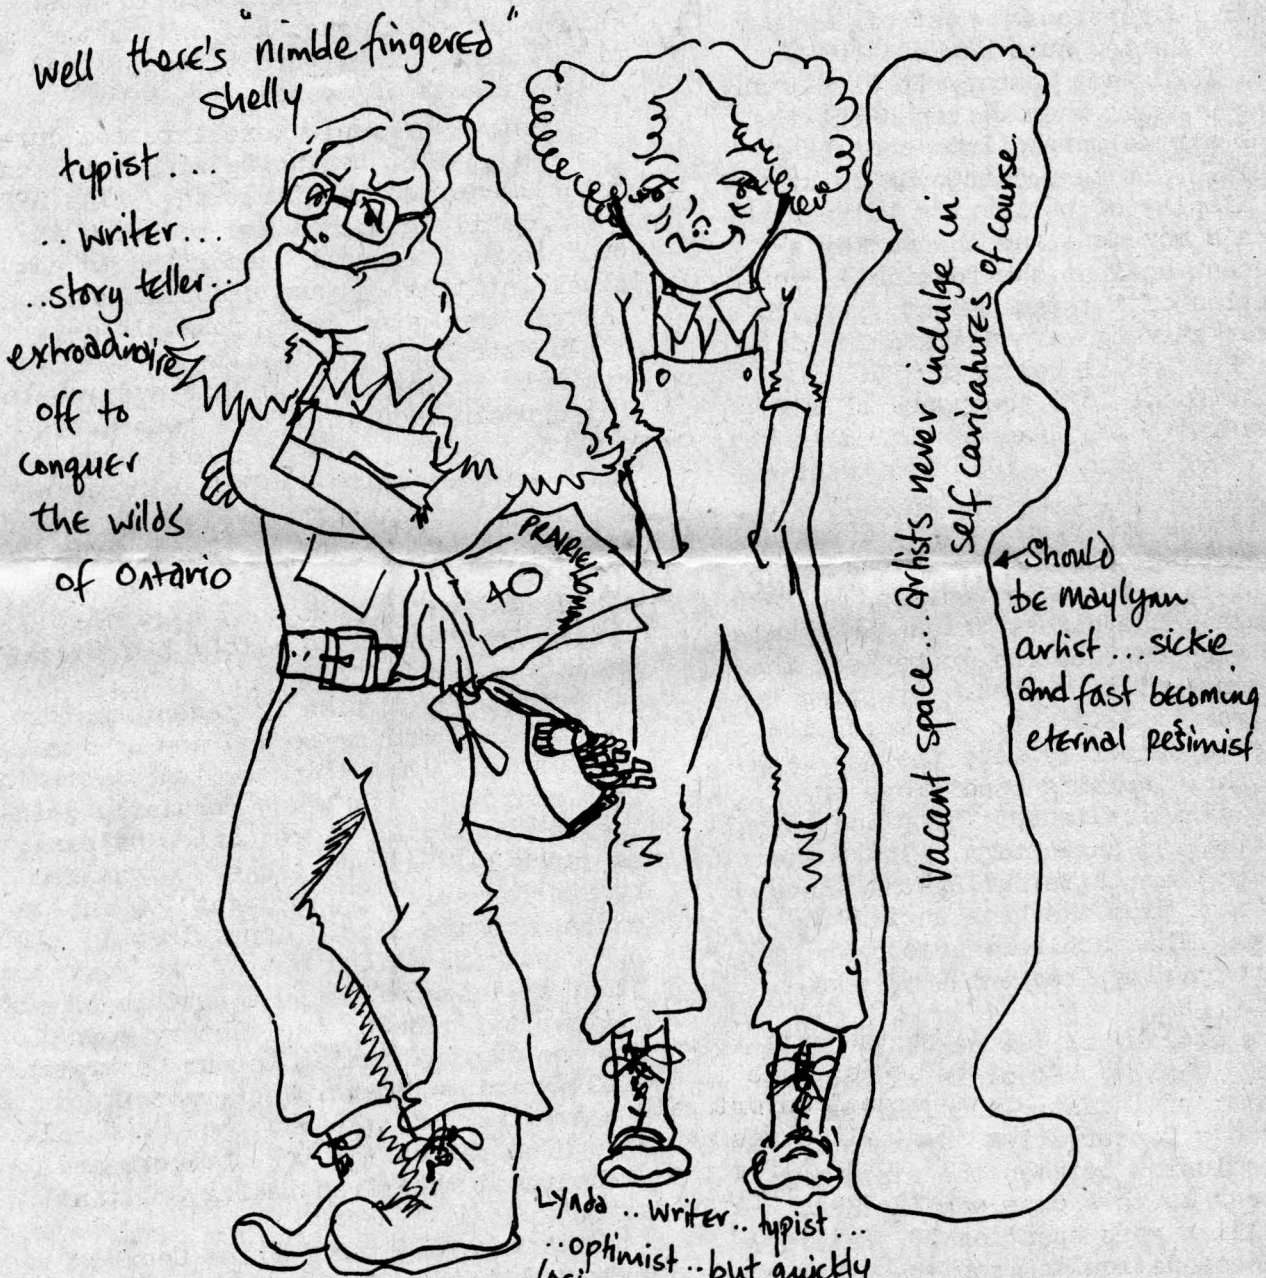 well there's "nimble fingered"
shelly
typist...
..writer...
..story teller..
extroadinaire
off to
conquer
the wilds
of Ontario
PRAIRIE WOMAN
40
Vacant space... artists never indulge in
self caricatures of course.
should
be maylynn
artist... sickie
and fast becoming
eternal pesimist
s
Lynda.. writer.. typist...
..optimist.. but quickly